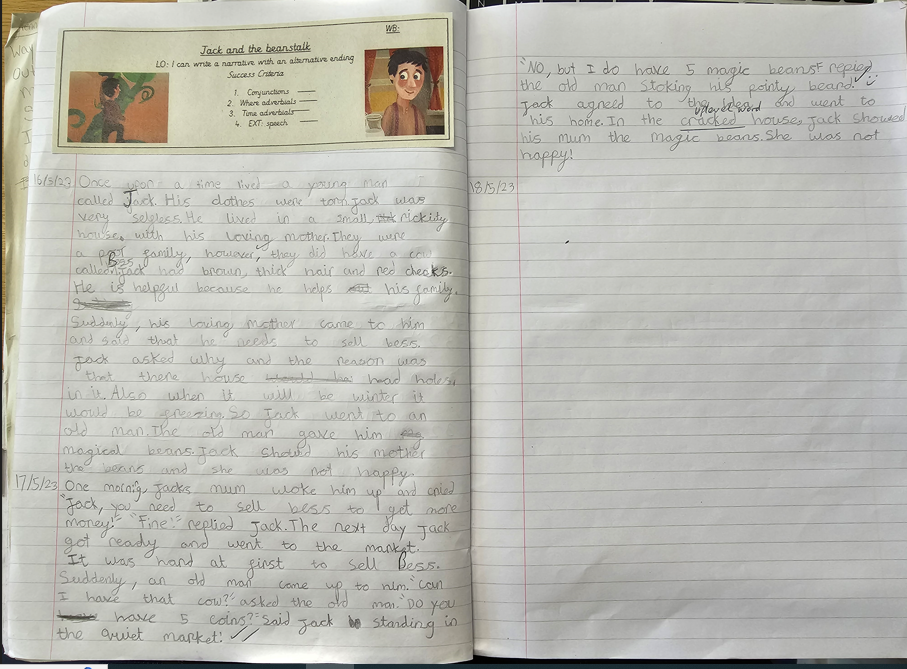 WB:
Jack and the beanstalk
LO: I can write a narrative with an alternative ending
Success Criteria
1. Conjunctions
2. Where adverbials
3. Time adverbials
4. EXT: speech
16/5/23 Once upon a time lived a young man
called Jack. His clothes were torn. Jack was
very selfless. He lived in a small rickity
house, with his loving mother. They were
a poor family, however, they did have a cow
called Bess. Jack had brown, thick hair and red cheaks.
He is helpful because he helps his family.
Suddenly, his loving mother came to him
and said that he needs to sell bess.
Jack asked why and the reason was
that there house had holes
in it. Also when it will be winter it
would be freezing. So Jack went to an
old man. The old man gave him
magical beans. Jack showd his mother
the beans and she was not happy.
17/5/23 One mornig, Jacks mum woke him up and cried
"Jack, you need to sell bess to get more
money!" "Fine!" replied Jack. The next day Jack
got ready and went to the market.
It was hard at first to sell Bess.
Suddenly, an old man come up to him. "Can
I have that cow?" asked the old man. "Do you
have 5 coins?" Said Jack standing in
the quiet market!
"NO, but I do have 5 magic beans" replied
the old man Stoking his pointy beard!
Jack agreed to the and went to
his home. In the cracked house, Jack showed
his mum the magic beans. She was not
happy!
18/5/23